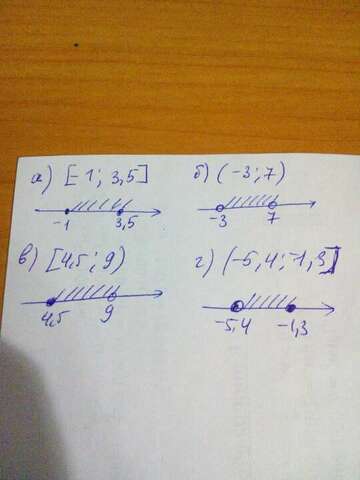 а) [-1; 3,5]
б) (-3; 7)
-1 3,5
-3 7
в) [4,5; 9)
г) (-5,4; -1,3]
4,5 9
-5,4 -1,3